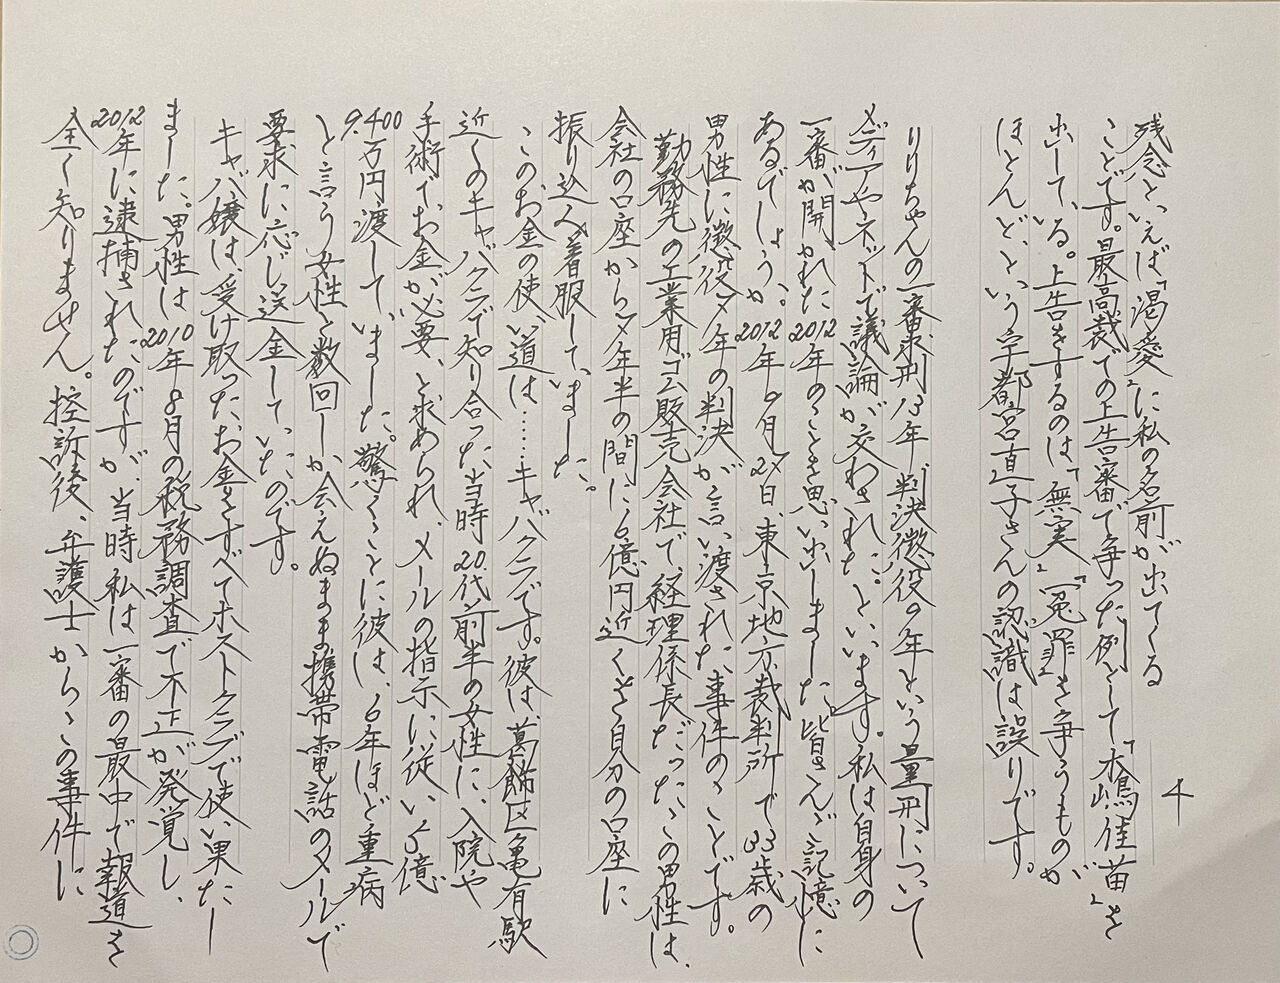 4
残念といえば『渇愛』に私の名前が出てくる
ことです。最高裁での上告審で争った例として「木嶋佳苗」を
出している。上告をするのは、「無実」「冤罪」を争うものが
ほとんど、という宇都宮直子さんの認識は誤りです。
りりちゃんの一審求刑13年 判決懲役9年という量刑について
メディアやネットで議論が交わされた、といいます。私は自身の
一審が開かれた2012年のことを思い出しました。皆さんご記憶に
あるでしょうか。2012年6月27日、東京地方裁判所で33歳の
男性に懲役7年の判決が言い渡された事件のことです。
勤務先の工業用ゴム販売会社で、経理係長だったこの男性は、
会社の口座から7年半の間に6億円近くを自分の口座に
振り込み着服していました。
このお金の使い道は……キャバクラです。彼は、葛飾区亀有駅
近くのキャバクラで知り合った当時20代前半の女性に、入院や
手術でお金が必要、と求められ、メールの指示に従い、5億
9,400万円渡していました。驚くことに彼は、6年ほど重病
と言う女性と数回しか会えぬまま携帯電話のメールで
要求に応じ送金していたのです。
キャバ嬢は、受け取ったお金をすべてホストクラブで使い果たし
ました。男性は2010年8月の税務調査で不正が発覚し、
2012年に逮捕されたのですが、当時私は一審の最中で報道を
全く知りません。控訴後、弁護士からこの事件に